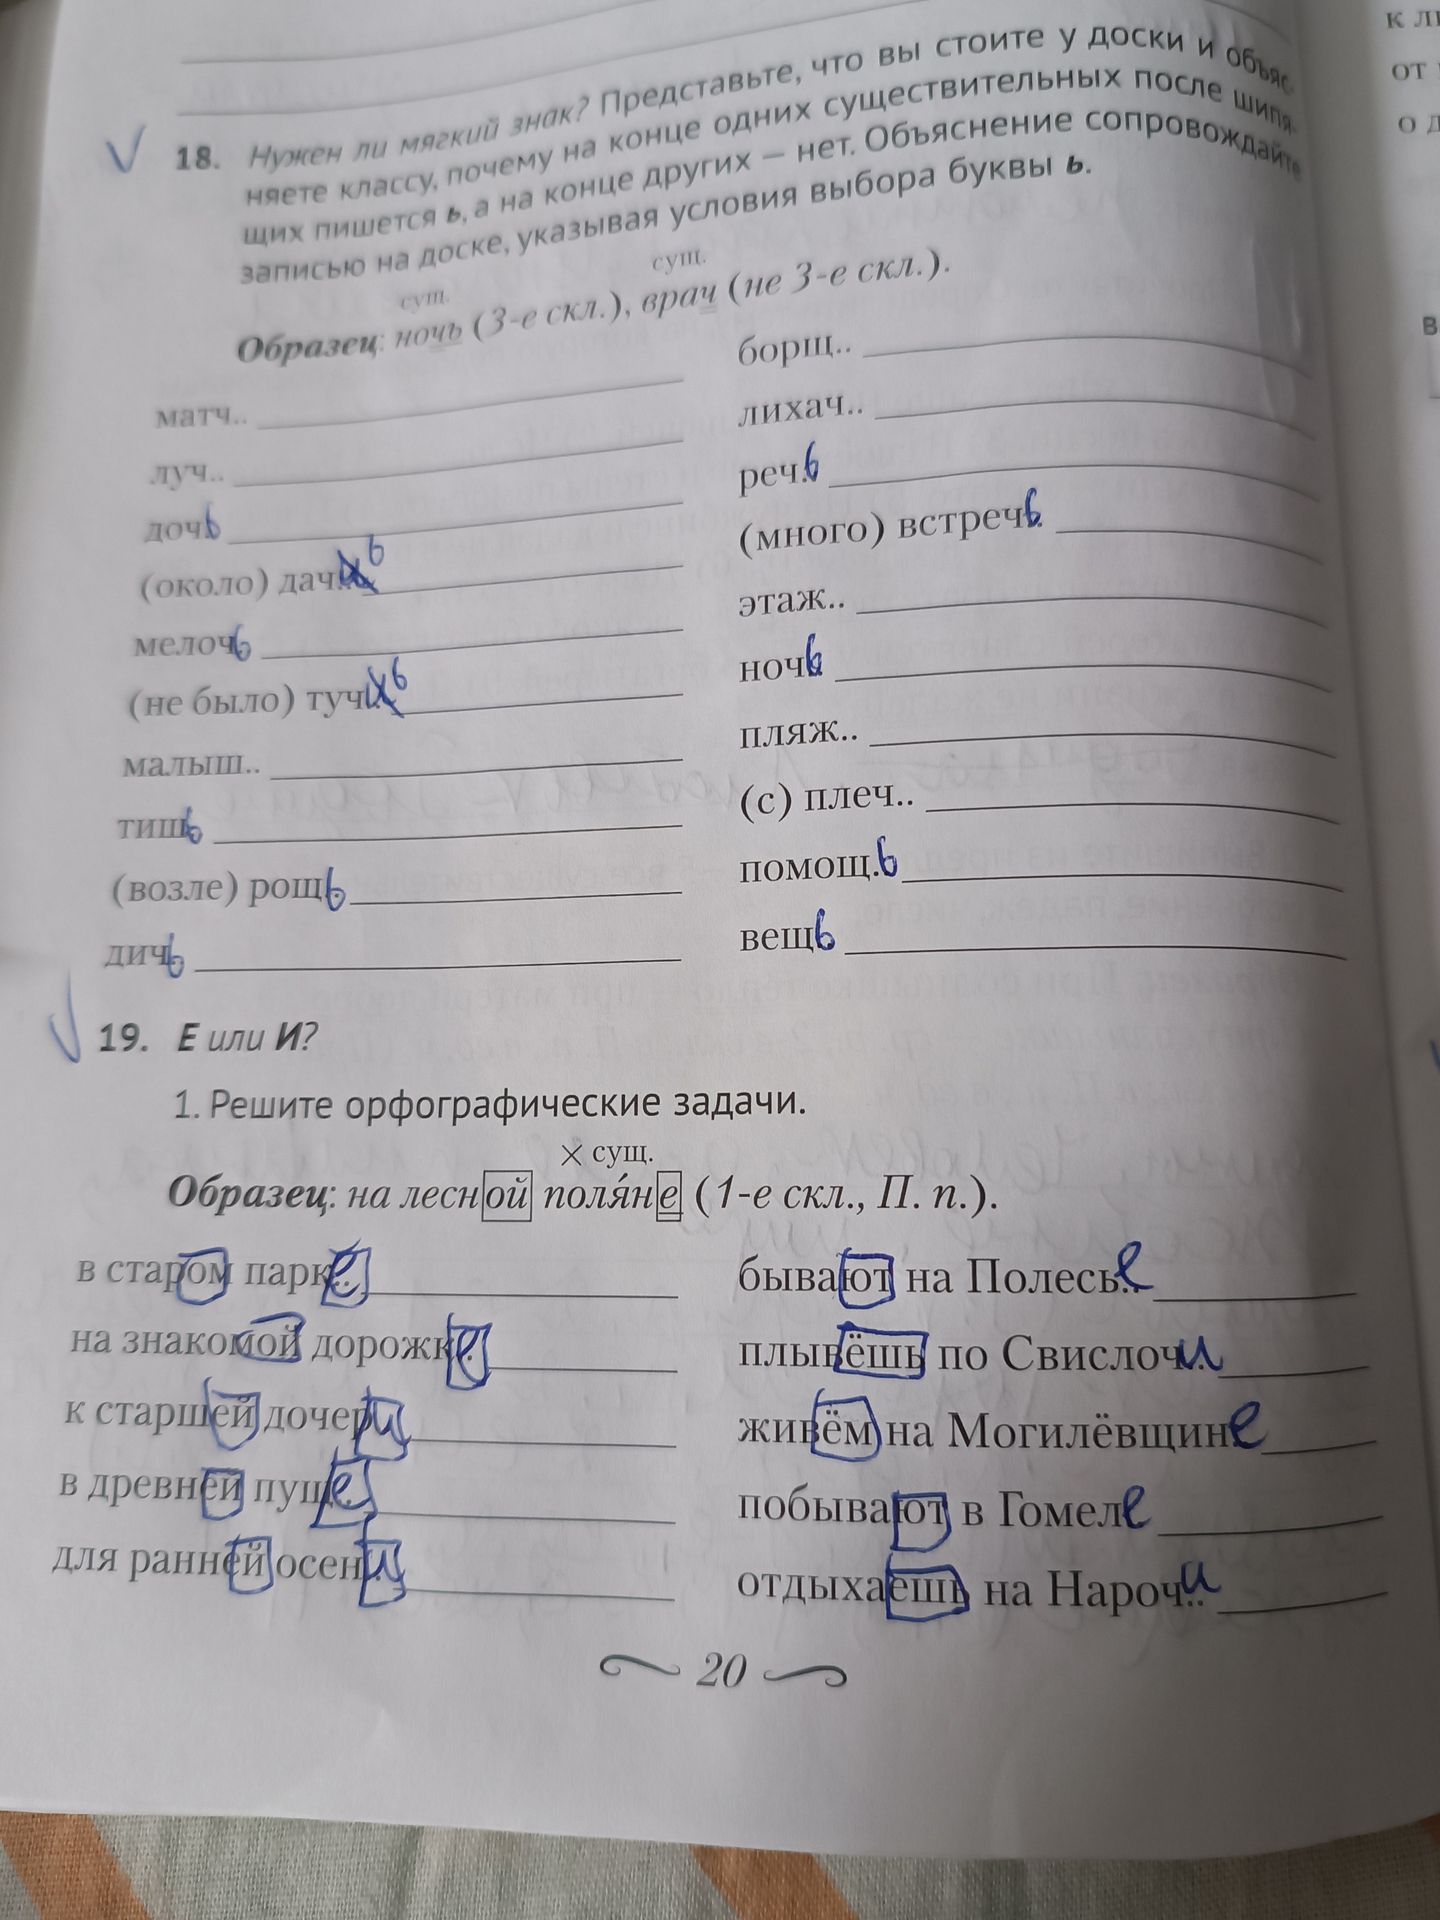 к
от
о
в
18. Нужен ли мягкий знак? Представьте, что вы стоите у доски и объяс-
няете классу, почему на конце одних существительных после шипя-
щих пишется ь, а на конце других – нет. Объяснение сопровождайте
записью на доске, указывая условия выбора буквы ь.
сущ. сущ.
Образец: ночь (3-е скл.), врач (не 3-е скл.).
матч..
луч..
дочь
(около) дач..ь
мелочь
(не было) туч..ь
малыш..
тишь
(возле) рощь
дичь
борщ..
лихач..
речь
(много) встречь
этаж..
ночь
пляж..
(с) плеч..
помощь
вещь
19. Е или И?
1. Решите орфографические задачи.
× сущ.
Образец: на лесной поля́не (1-е скл., П. п.).
в старом парке
на знакомой дорожке
к старшей дочери
в древней пуще
для ранней осени
бывают на Полесье
плывёшь по Свислочи
живём на Могилёвщине
побывают в Гомеле
отдыхаешь на Нарочи
20